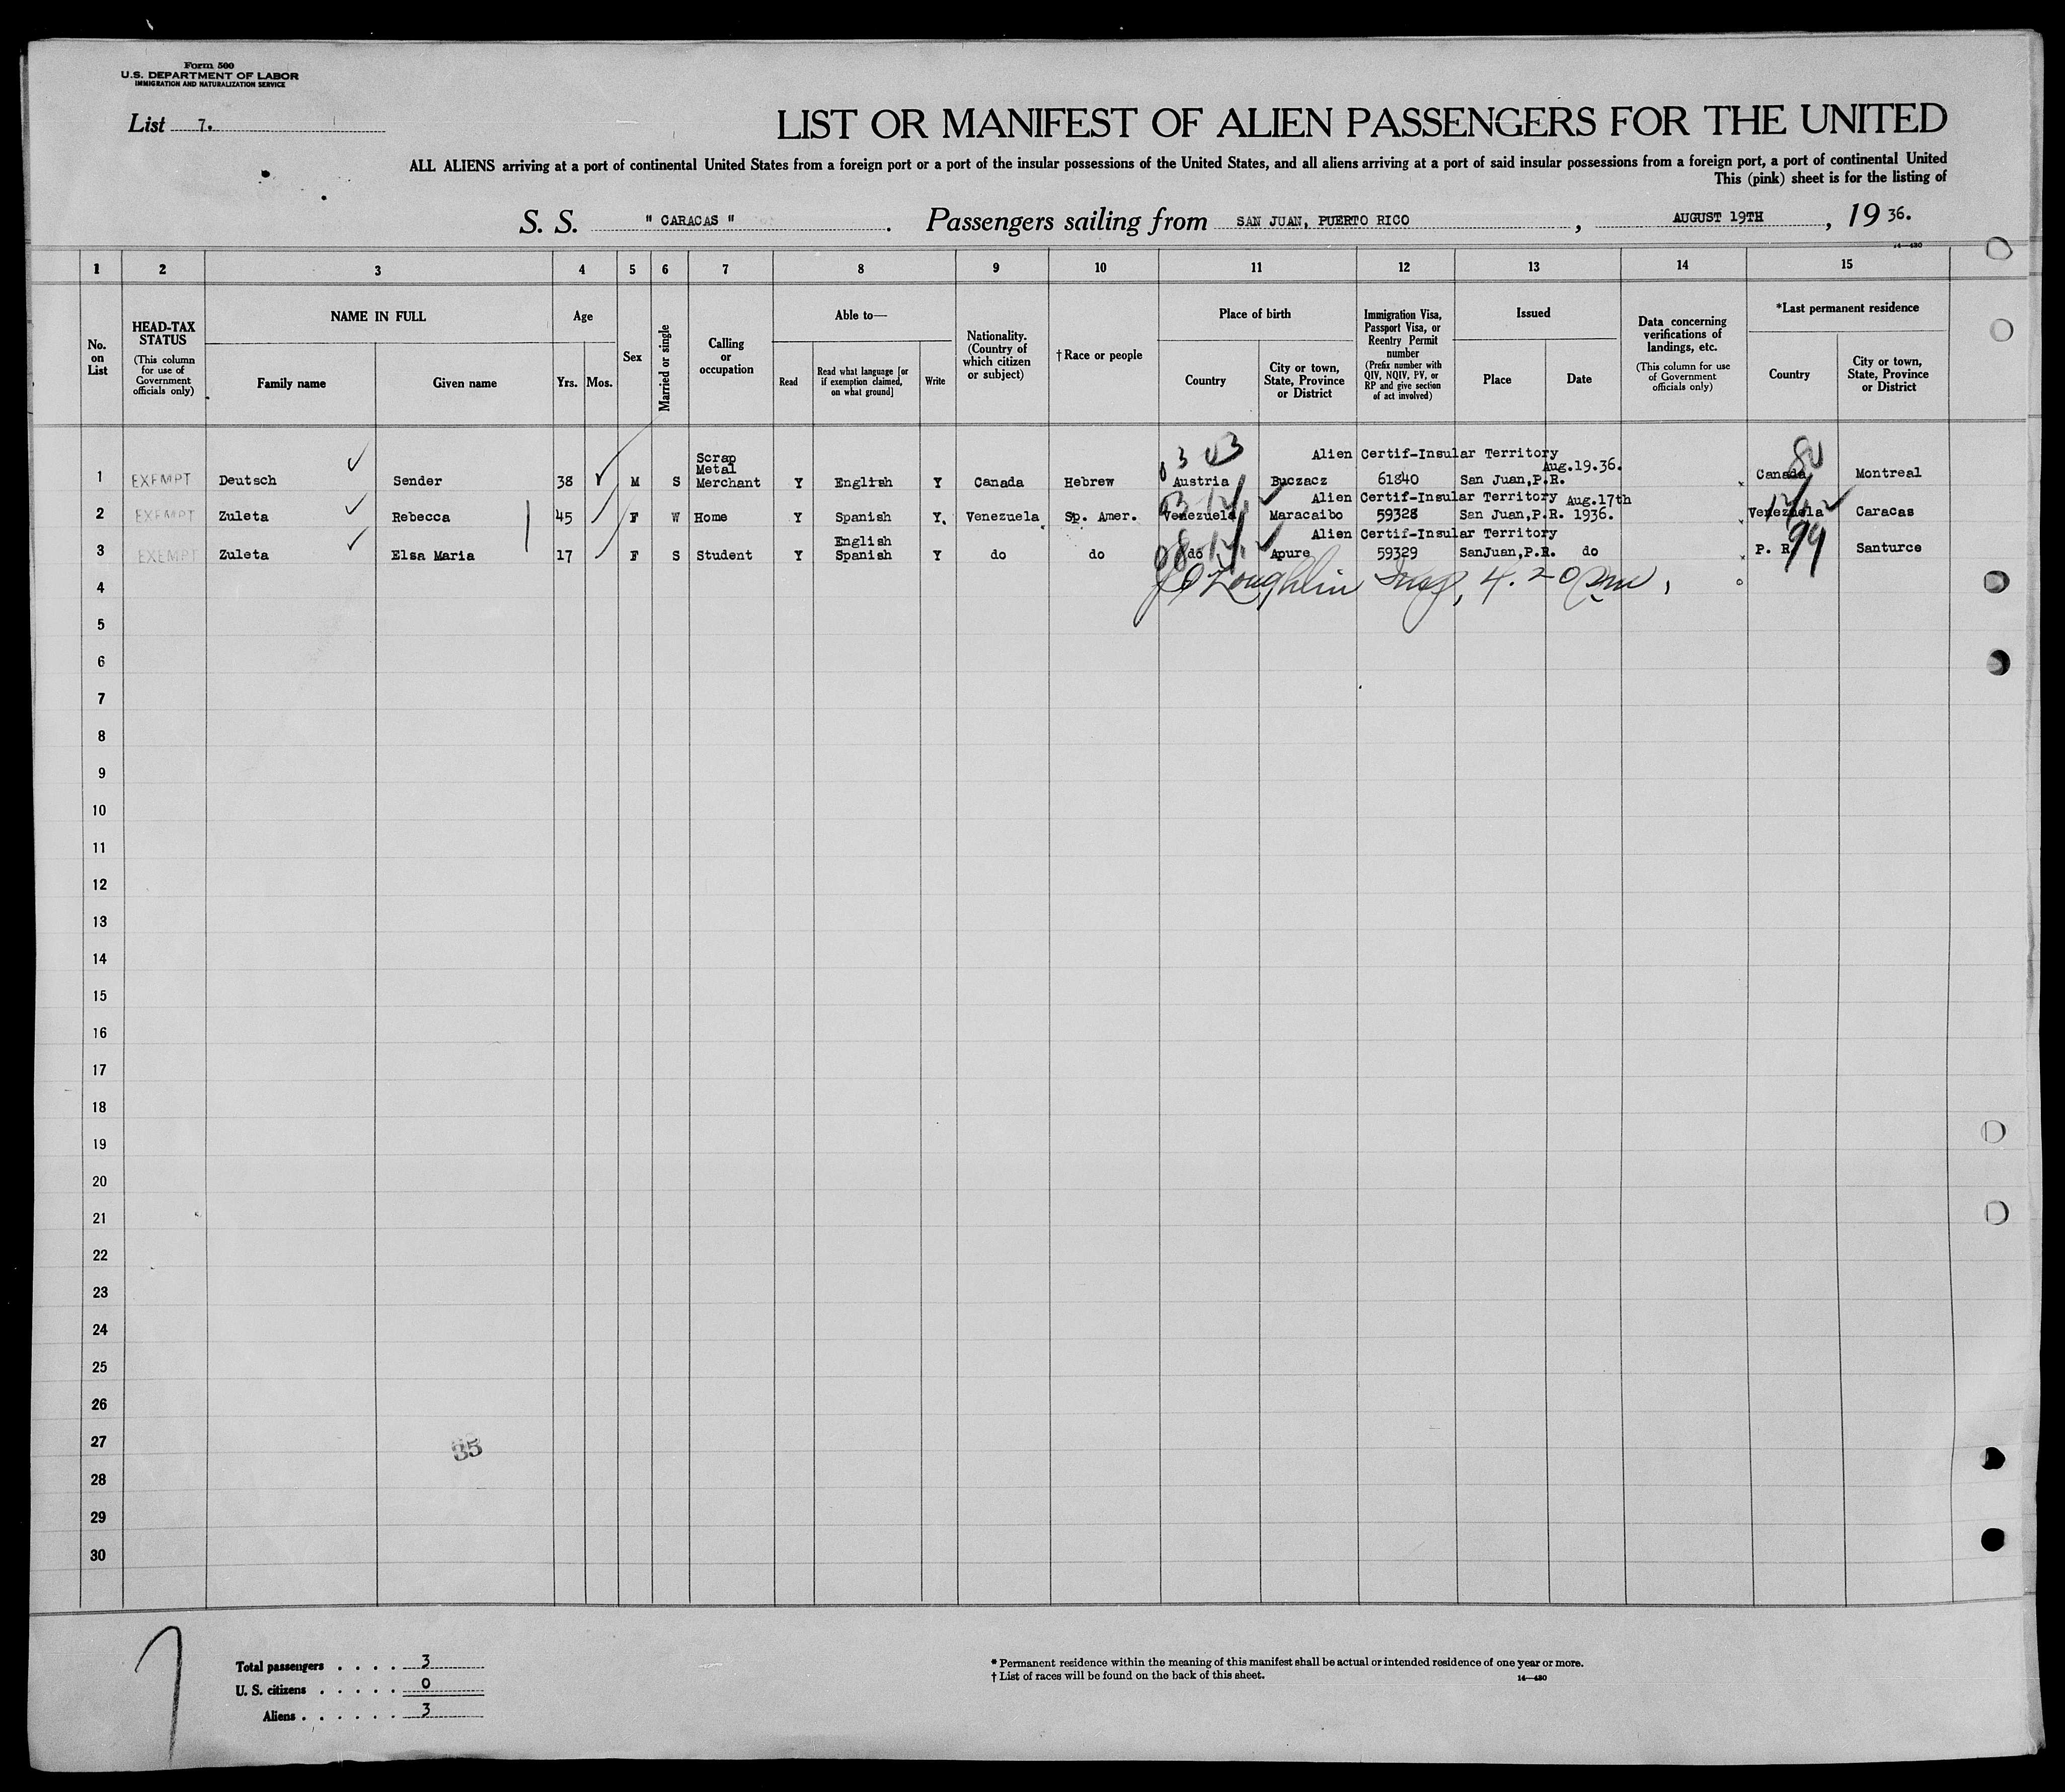 Form 500
U.S. DEPARTMENT OF LABOR
IMMIGRATION AND NATURALIZATION SERVICE
List 7.
LIST OR MANIFEST OF ALIEN PASSENGERS FOR THE UNITED
ALL ALIENS arriving at a port of continental United States from a foreign port or a port of the insular possessions of the United States, and all aliens arriving at a port of said insular possessions from a foreign port, a port of continental United
This (pink) sheet is for the listing of
S. S. " CARACAS ". Passengers sailing from SAN JUAN, PUERTO RICO, AUGUST 19TH, 19 36.
14—430
1 2 3 4 5 6 7 8 9 10 11 12 13 14 15
No. on List
HEAD-TAX STATUS
(This column for use of Government officials only)
NAME IN FULL
Family name Given name
Age
Yrs. Mos.
Sex
Married or single
Calling or occupation
Able to—
Read
Read what language [or if exemption claimed, on what ground]
Write
Nationality. (Country of which citizen or subject)
† Race or people
Place of birth
Country
City or town, State, Province or District
Immigration Visa, Passport Visa, or Reentry Permit number
(Prefix number with QIV, NQIV, PV, or RP and give section of act involved)
Issued
Place Date
Data concerning verifications of landings, etc.
(This column for use of Government officials only)
*Last permanent residence
Country
City or town, State, Province or District
Alien Certif-Insular Territory
1 EXEMPT Deutsch Sender 38 M S Scrap Metal Merchant Y English Y Canada Hebrew Austria Buczacz 61840 San Juan,P.R. Aug.19.36. Canada Montreal
Alien Certif-Insular Territory
2 EXEMPT Zuleta Rebecca 45 F W Home Y Spanish Y. Venezuela Sp. Amer. Venezuela Maracaibo 59328 San Juan,P.R. Aug.17th 1936. Venezuela Caracas
Alien Certif-Insular Territory
3 EXEMPT Zuleta Elsa Maria 17 F S Student Y English Spanish Y do do do Apure 59329 SanJuan,P.R. do P. R. 99 Santurce
4 4.20 pm
5
6
7
8
9
10
11
12
13
14
15
16
17
18
19
20
21
22
23
24
25
26
27
35
28
29
30
Total passengers . . . . 3
U. S. citizens . . . . . 0
Aliens . . . . . . 3
* Permanent residence within the meaning of this manifest shall be actual or intended residence of one year or more.
† List of races will be found on the back of this sheet.
14—430